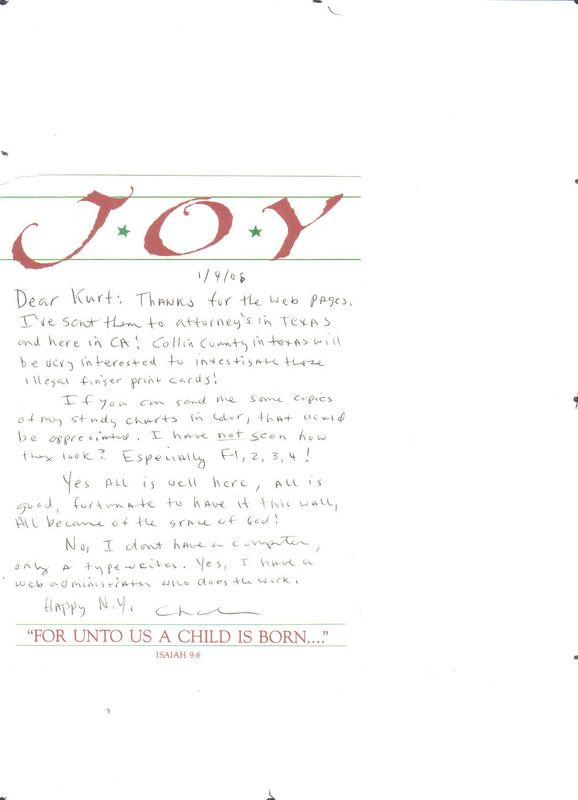 J★O★Y
1/4/08
Dear Kurt: THANKS for the web pages.
I've sent them to attorney's in TEXAS
and here in CA! Collin County in texas will
be very interested to investigate those
illegal finger print cards!
If you can send me some copies
of my study charts in color, that would
be appreciated. I have not seen how
they look? Especially F-1, 2, 3, 4!
Yes All is well here, All is
good, fortunate to have it this well,
All because of the grace of God!
No, I dont have a computer,
only a typewriter. Yes, I have a
web administrator who does the work.
Happy N.Y.
"FOR UNTO US A CHILD IS BORN...."
ISAIAH 9:6